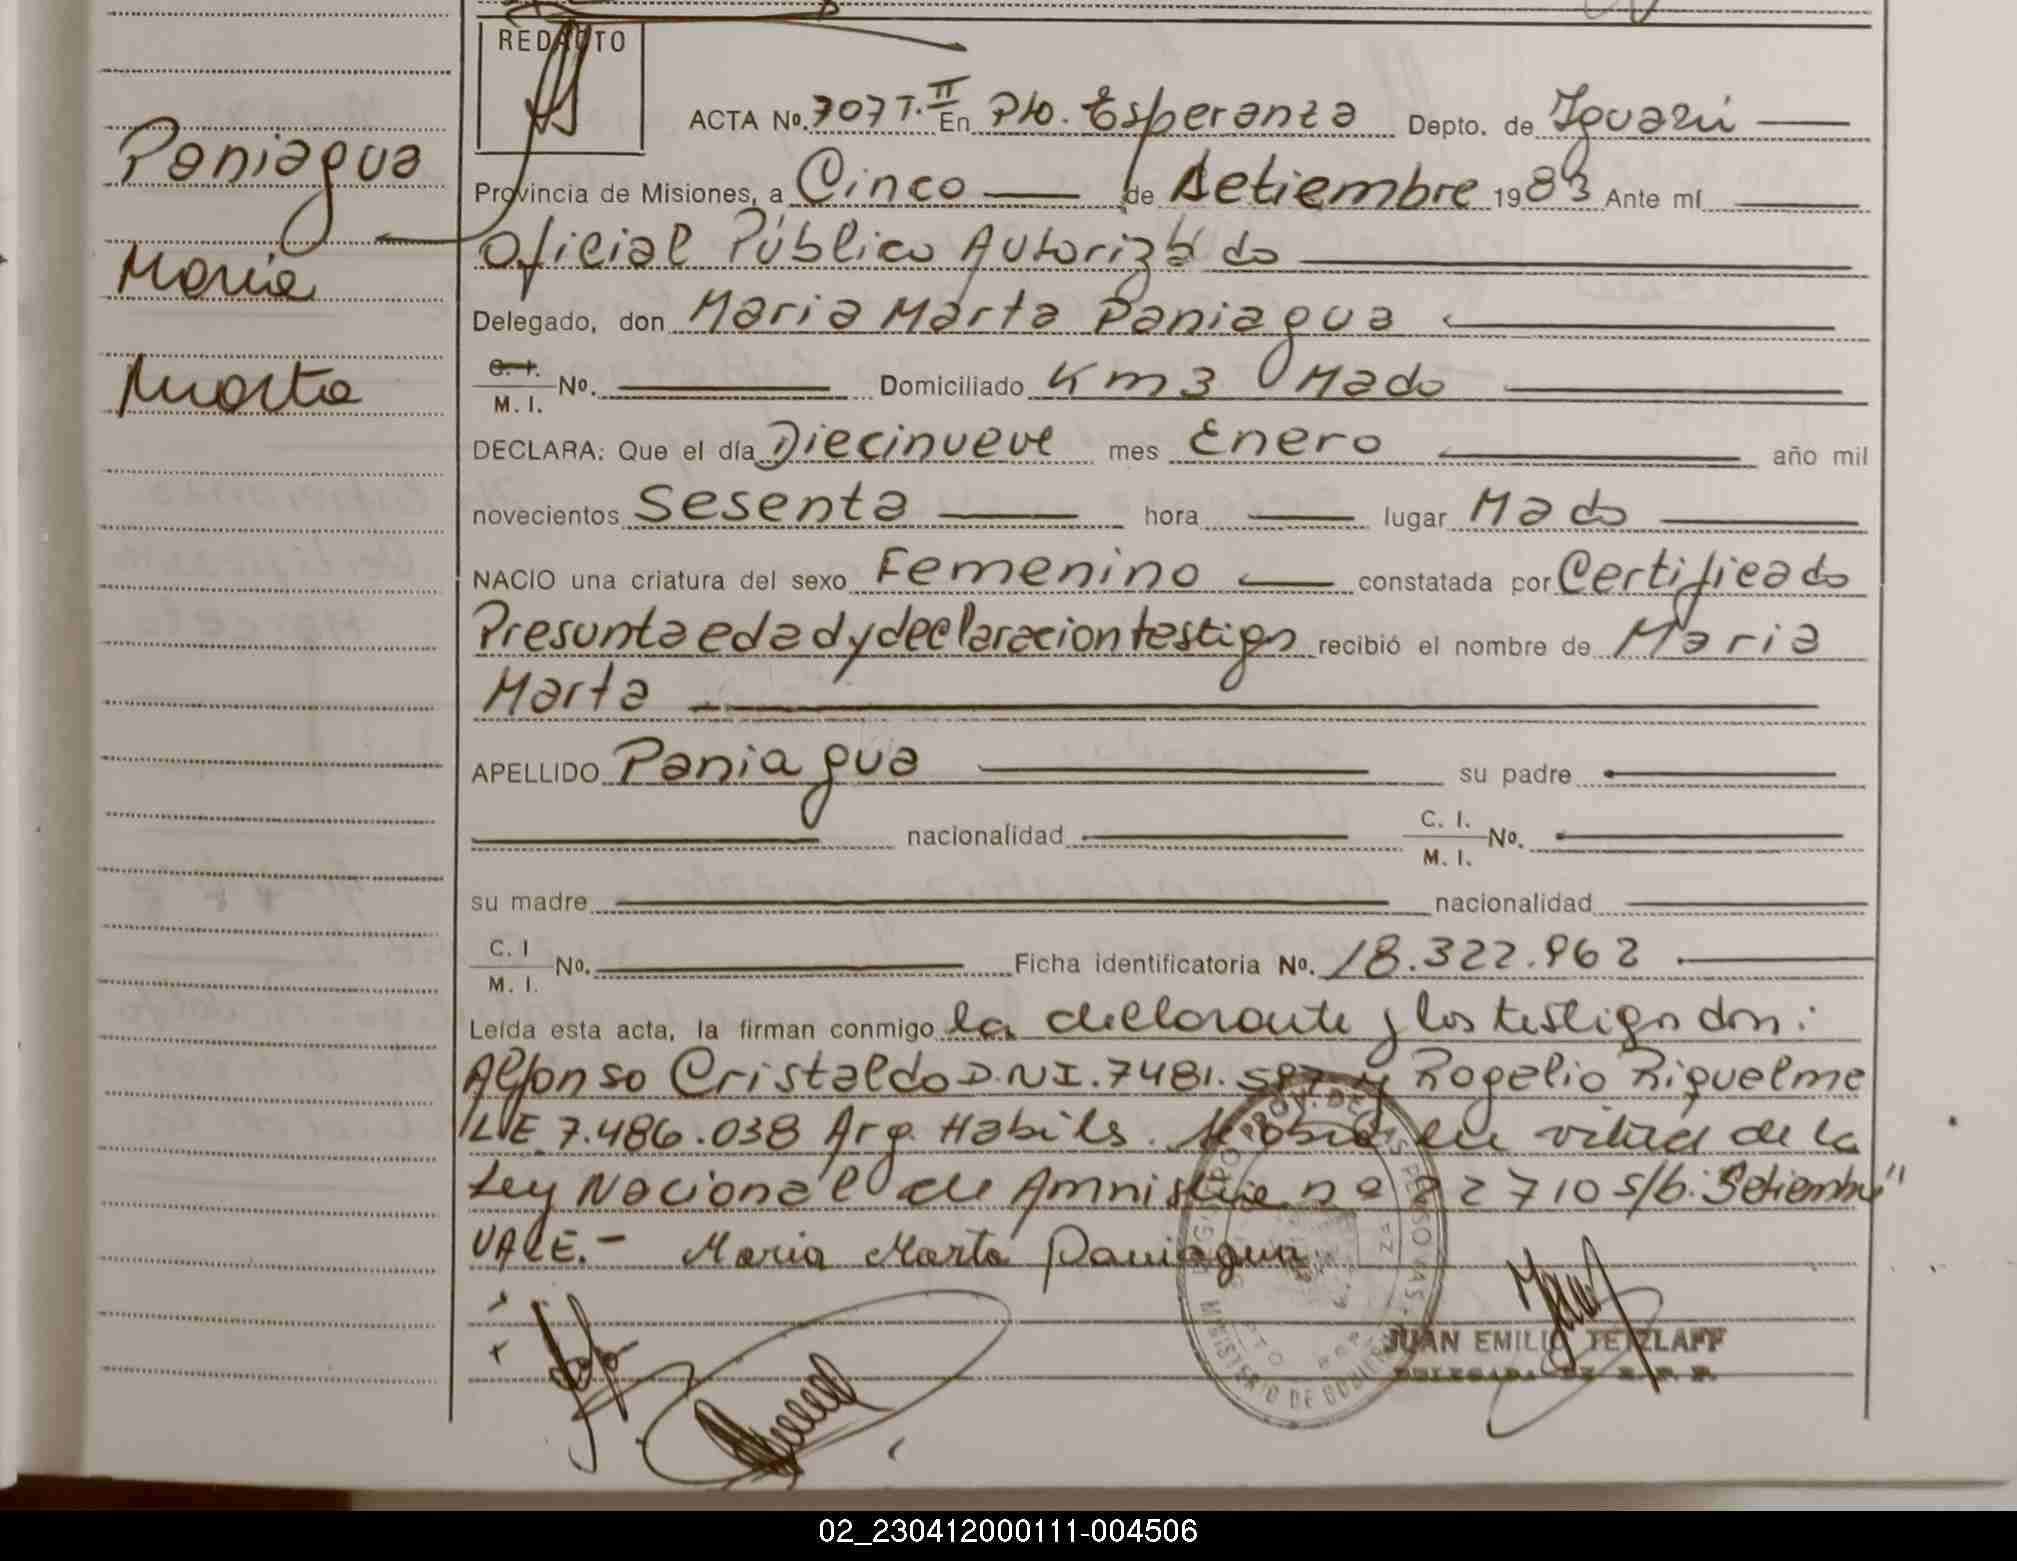 REDACTO
ACTA Nº. 707 T. II En Pto. Esperanza Depto. de Iguazú
Paniagua
Provincia de Misiones, a Cinco de Setiembre 1983 Ante mí
Oficial Público Autorizado
Maria
Delegado, don Maria Marta Paniagua
Marta
C. I. M. I. Nº. Domiciliado Km 3 Mado
DECLARA: Que el día Diecinueve mes Enero año mil
novecientos Sesenta hora lugar Mado
NACIO una criatura del sexo Femenino constatada por Certificado
Presunta edad y declaracion testigo recibió el nombre de Maria
Marta
APELLIDO Paniagua su padre
nacionalidad C. I. M. I. Nº.
su madre nacionalidad
C. I M. I. Nº. Ficha identificatoria Nº. 18.322.962
Leída esta acta, la firman conmigo la declarante y los testigo don:
Alfonso Cristaldo D.N.I. 7481.587 y Rogelio Riquelme
LE 7.486.038 Arg. Habils. en virtud de la
Ley Nacional de Amnistia nº 22710 s/b. Setiembre"
VALE.- Maria Marta Paniagua
JUAN EMILIO TETZLAFF
DELEGADA DE R. P. P.
MINISTERIO DE GOBIERNO
02_230412000111-004506